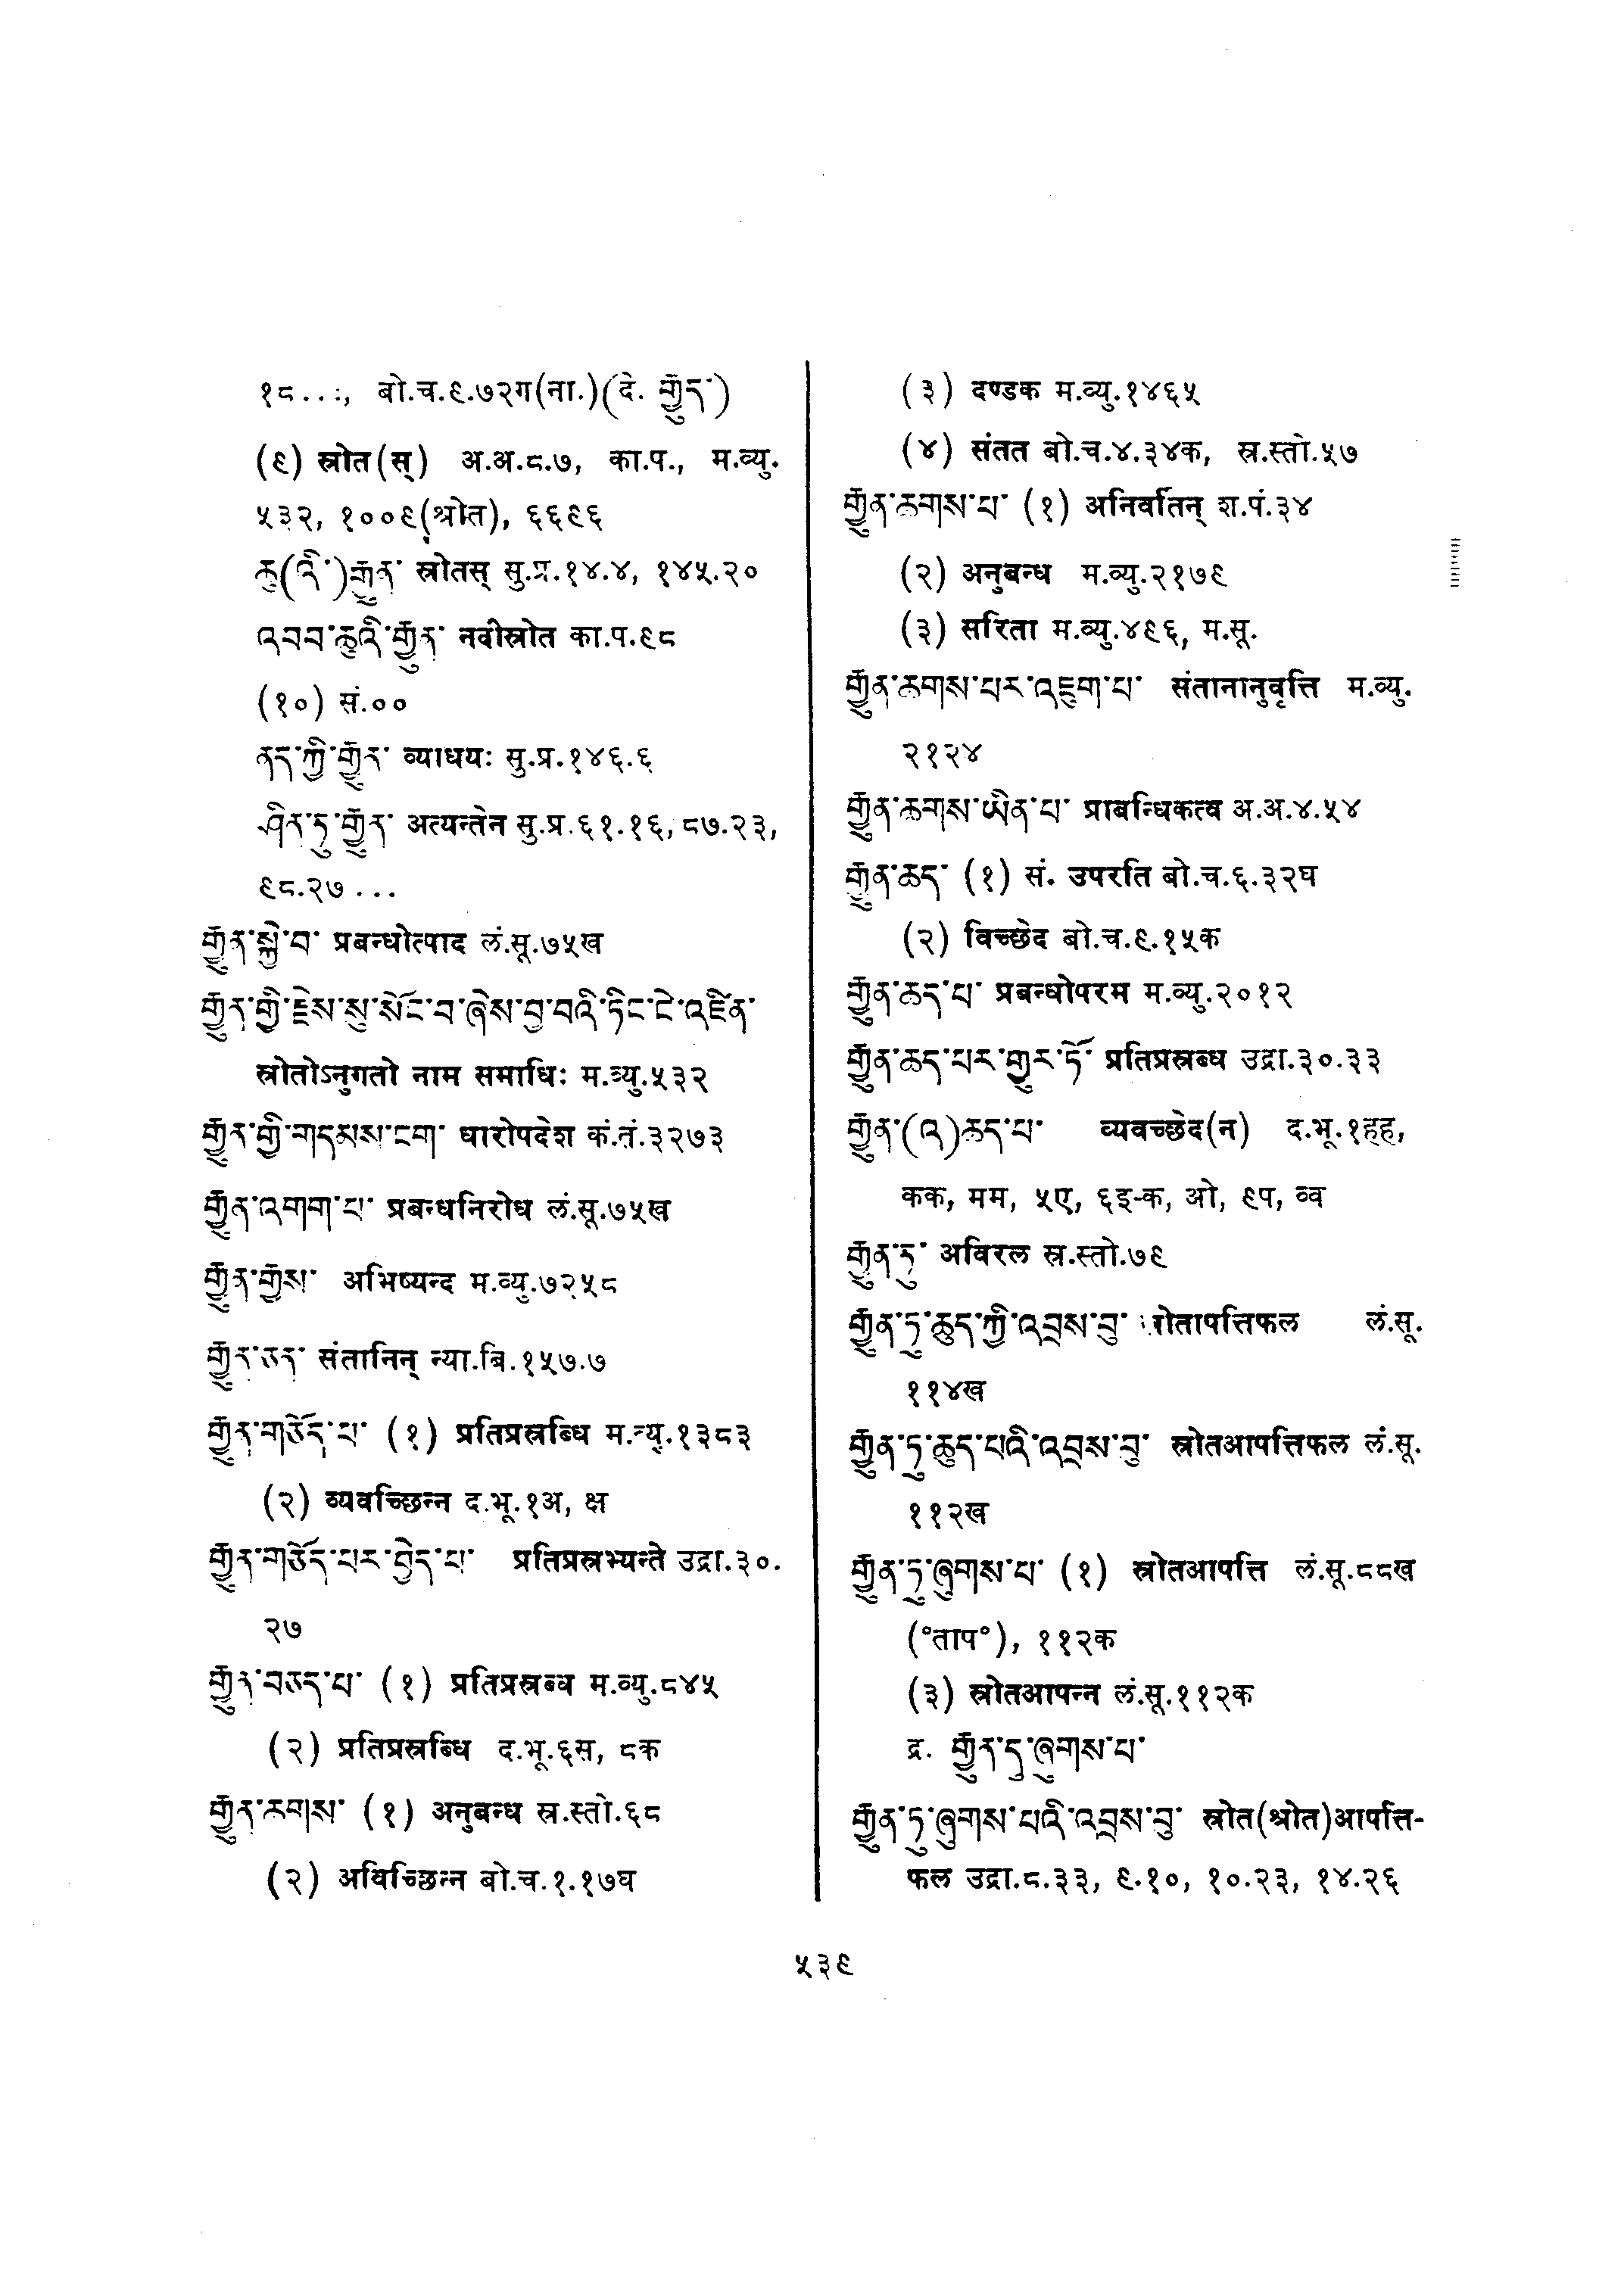 १८..., बो.च.९.७२ग(ना.)(दे. རྒྱུད་)
(९) स्रोत(स्) अ.अ.८.७, का.प., म.व्यु.
५३२, १००९(श्रोत), ६६९६
ཆུ(འི་)རྒྱུན་ स्रोतस् सु.प्र.१४.४, १४५.२०
འབབ་ཆུའི་རྒྱུན་ नदीस्रोत का.प.९८
(१०) सं.००
ནད་ཀྱི་རྒྱུན་ व्याधयः सु.प्र.१४६.६
ཤིན་ཏུ་རྒྱུན་ अत्यन्तेन सु.प्र.६१.१६, ८७.२३,
९८.२७ ...
རྒྱུན་སྐྱེ་བ་ प्रबन्धोत्पाद लं.सू.७५ख
རྒྱུན་གྱི་རྗེས་སུ་སོང་བ་ཞེས་བྱ་བའི་ཏིང་ངེ་འཛིན་
स्रोतोऽनुगतो नाम समाधिः म.व्यु.५३२
རྒྱུན་གྱི་གདམས་ངག་ धारोपदेश कं.तं.३२७३
རྒྱུན་འགག་པ་ प्रबन्धनिरोध लं.सू.७५ख
རྒྱུན་རྒྱས་ अभिष्यन्द म.व्यु.७२५८
རྒྱུན་ཅན་ संतानिन् न्या.बि.१५७.७
རྒྱུན་གཅོད་པ་ (१) प्रतिप्रस्रब्धि म.व्यु.१३८३
(२) व्यवच्छिन्न द.भू.१अ, क्ष
རྒྱུན་གཅོད་པར་བྱེད་པ་ प्रतिप्रस्रभ्यन्ते उद्रा.३०.
२७
རྒྱུན་བཅད་པ་ (१) प्रतिप्रस्रब्ध म.व्यु.८४५
(२) प्रतिप्रस्रब्धि द.भू.६स, ८क
རྒྱུན་ཆགས་ (१) अनुबन्ध स्र.स्तो.६८
(२) अविच्छिन्न बो.च.१.१७घ
(३) दण्डक म.व्यु.१४६५
(४) संतत बो.च.४.३४क, स्र.स्तो.५७
རྒྱུན་ཆགས་པ་ (१) अनिवर्तिन् श.पं.३४
(२) अनुबन्ध म.व्यु.२१७९
(३) सरिता म.व्यु.४९६, म.सू.
རྒྱུན་ཆགས་པར་འཇུག་པ་ संतानानुवृत्ति म.व्यु.
२१२४
རྒྱུན་ཆགས་ཡིན་པ་ प्राबन्धिकत्व अ.अ.४.५४
རྒྱུན་ཆད་ (१) सं. उपरति बो.च.६.३२घ
(२) विच्छेद बो.च.९.१५क
རྒྱུན་ཆད་པ་ प्रबन्धोपरम म.व्यु.२०१२
རྒྱུན་ཆད་པར་གྱུར་ཏོ་ प्रतिप्रस्रब्ध उद्रा.३०.३३
རྒྱུན་(འ)ཆད་པ་ व्यवच्छेद(न) द.भू.१हह,
कक, मम, ५ए, ६इ-क, ओ, ९प, व्व
རྒྱུན་དུ་ अविरल स्र.स्तो.७९
རྒྱུན་ཏུ་ཆུད་ཀྱི་འབྲས་བུ་ रोतापत्तिफल लं.सू.
११४ख
རྒྱུན་ཏུ་ཆུད་པའི་འབྲས་བུ་ स्रोतआपत्तिफल लं.सू.
११२ख
རྒྱུན་ཏུ་ཞུགས་པ་ (१) स्रोतआपत्ति लं.सू.८८ख
(°ताप°), ११२क
(३) स्रोतआपन्न लं.सू.११२क
द्र. རྒྱུན་དུ་ཞུགས་པ་
རྒྱུན་ཏུ་ཞུགས་པའི་འབྲས་བུ་ स्रोत(श्रोत)आपत्ति-
फल उद्रा.८.३३, ९.१०, १०.२३, १४.२६
५३९